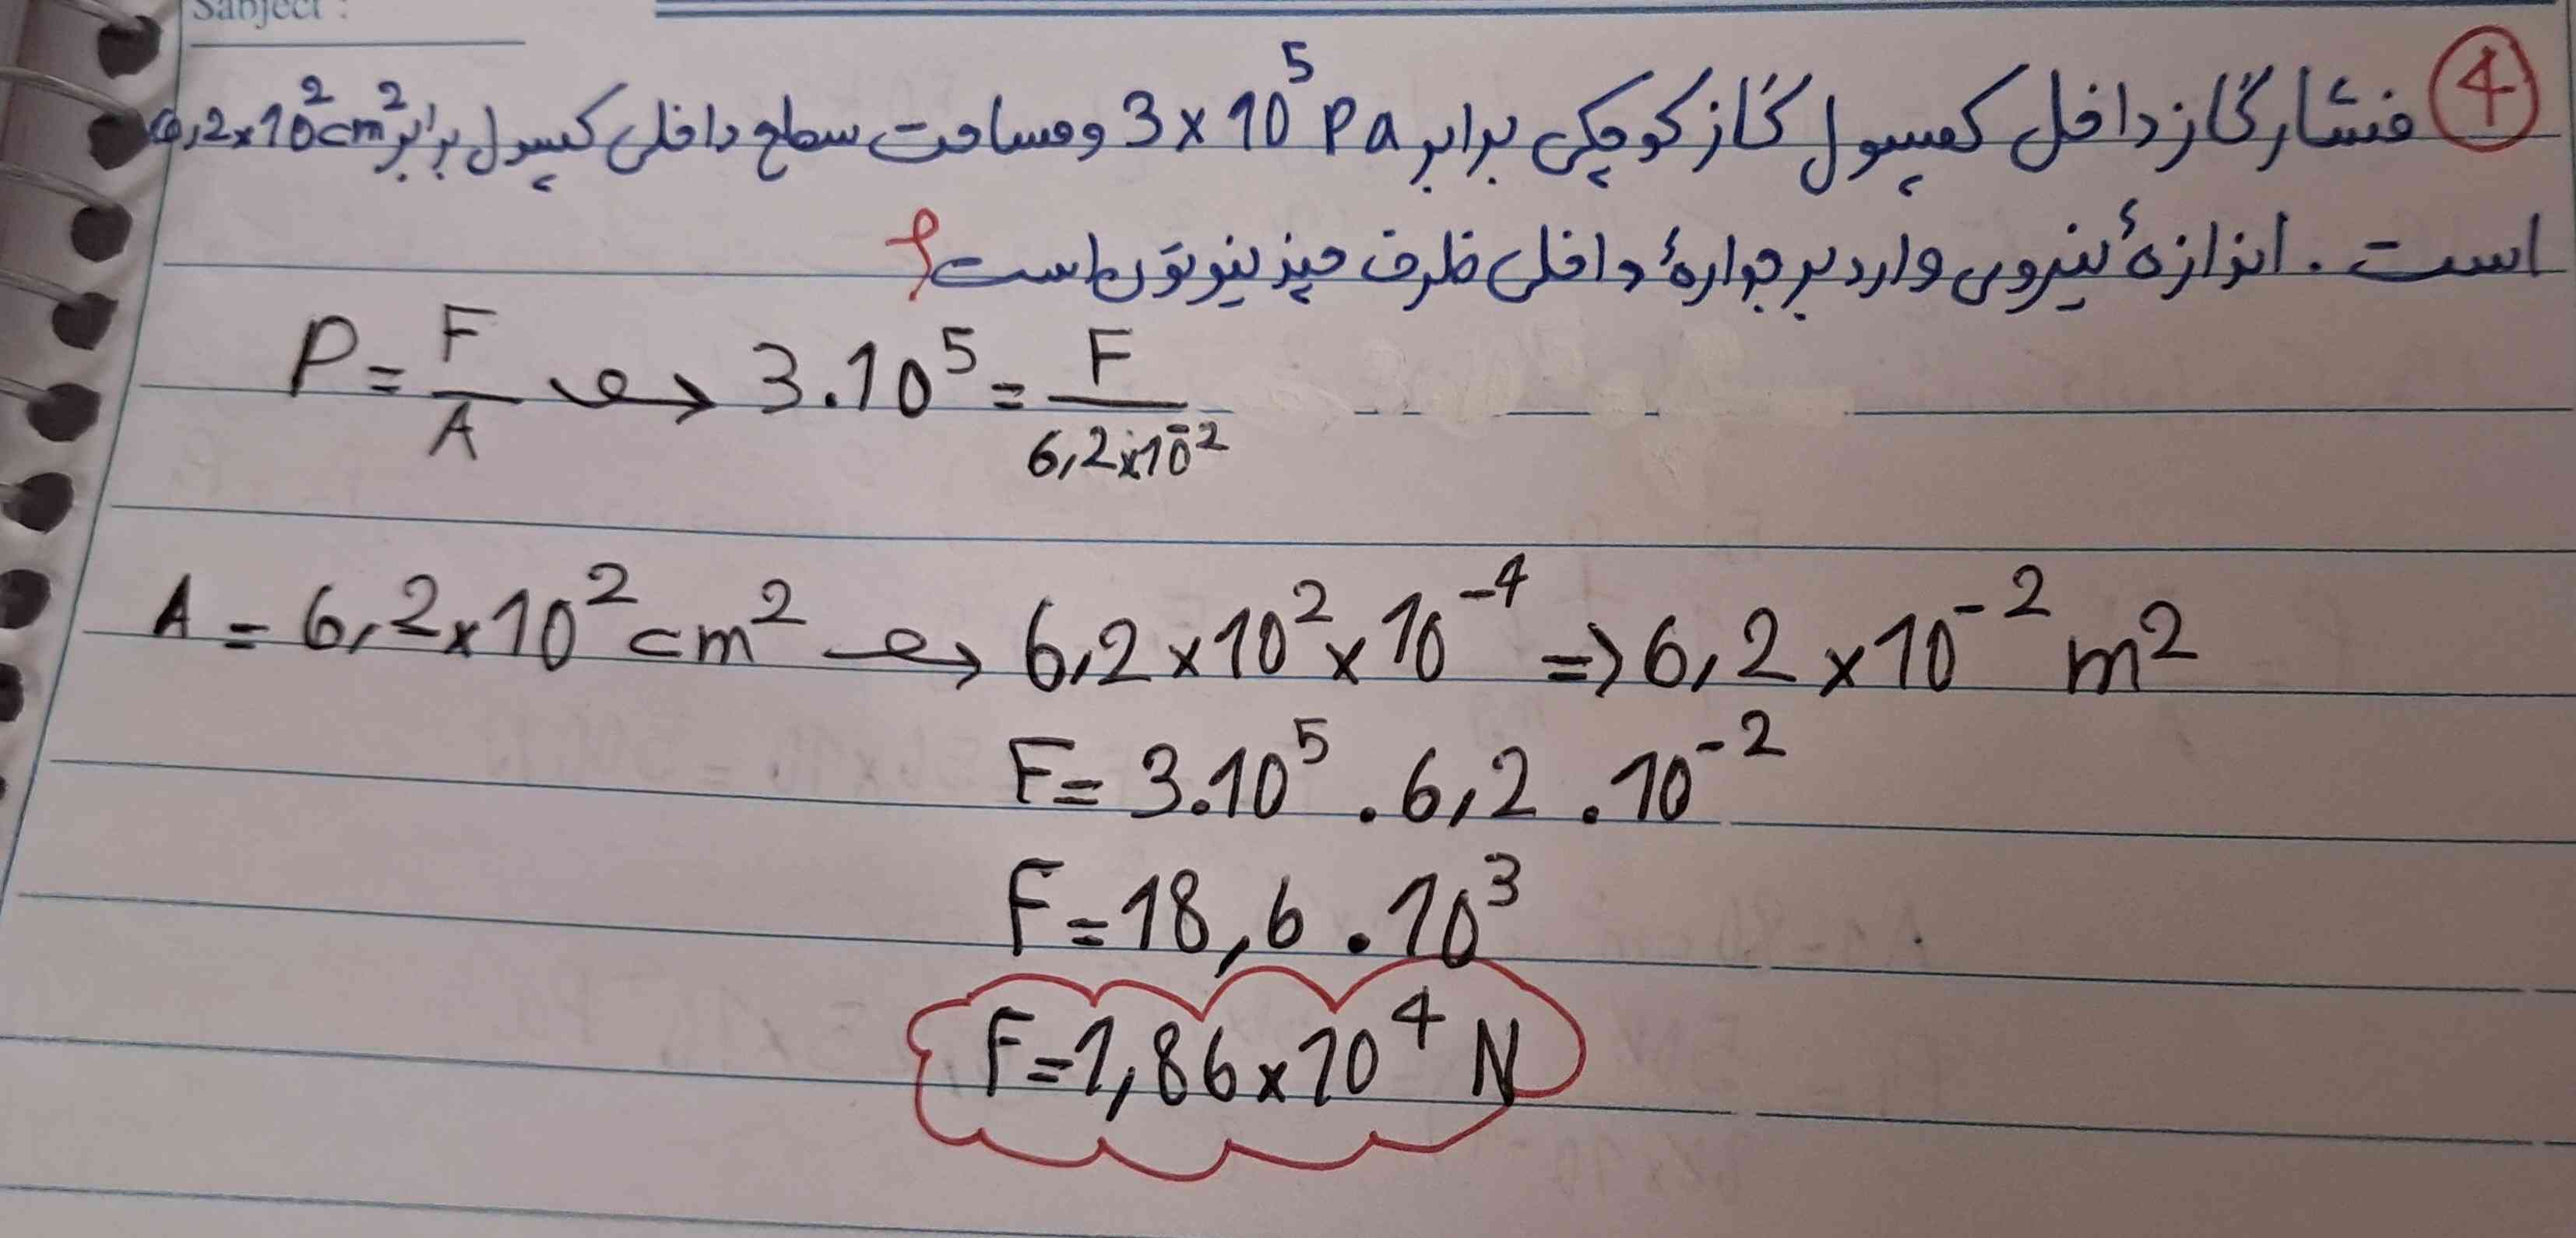 Subject :
④ فشار گاز داخل کپسول گاز کوچکی برابر 3 × 10⁵ Pa و مساحت سطح داخلی کپسول برابر 6,2×10² cm²
است. اندازهٔ نیروی وارد بر جدارهٔ داخلی ظرف چند نیوتون است؟
P = F/A → 3.10⁵ = F/(6,2×10⁻²)
A = 6,2×10² cm² → 6,2×10²×10⁻⁴ => 6,2×10⁻² m²
F = 3.10⁵ . 6,2 . 10⁻²
F = 18,6 . 10³
F = 1,86×10⁴ N